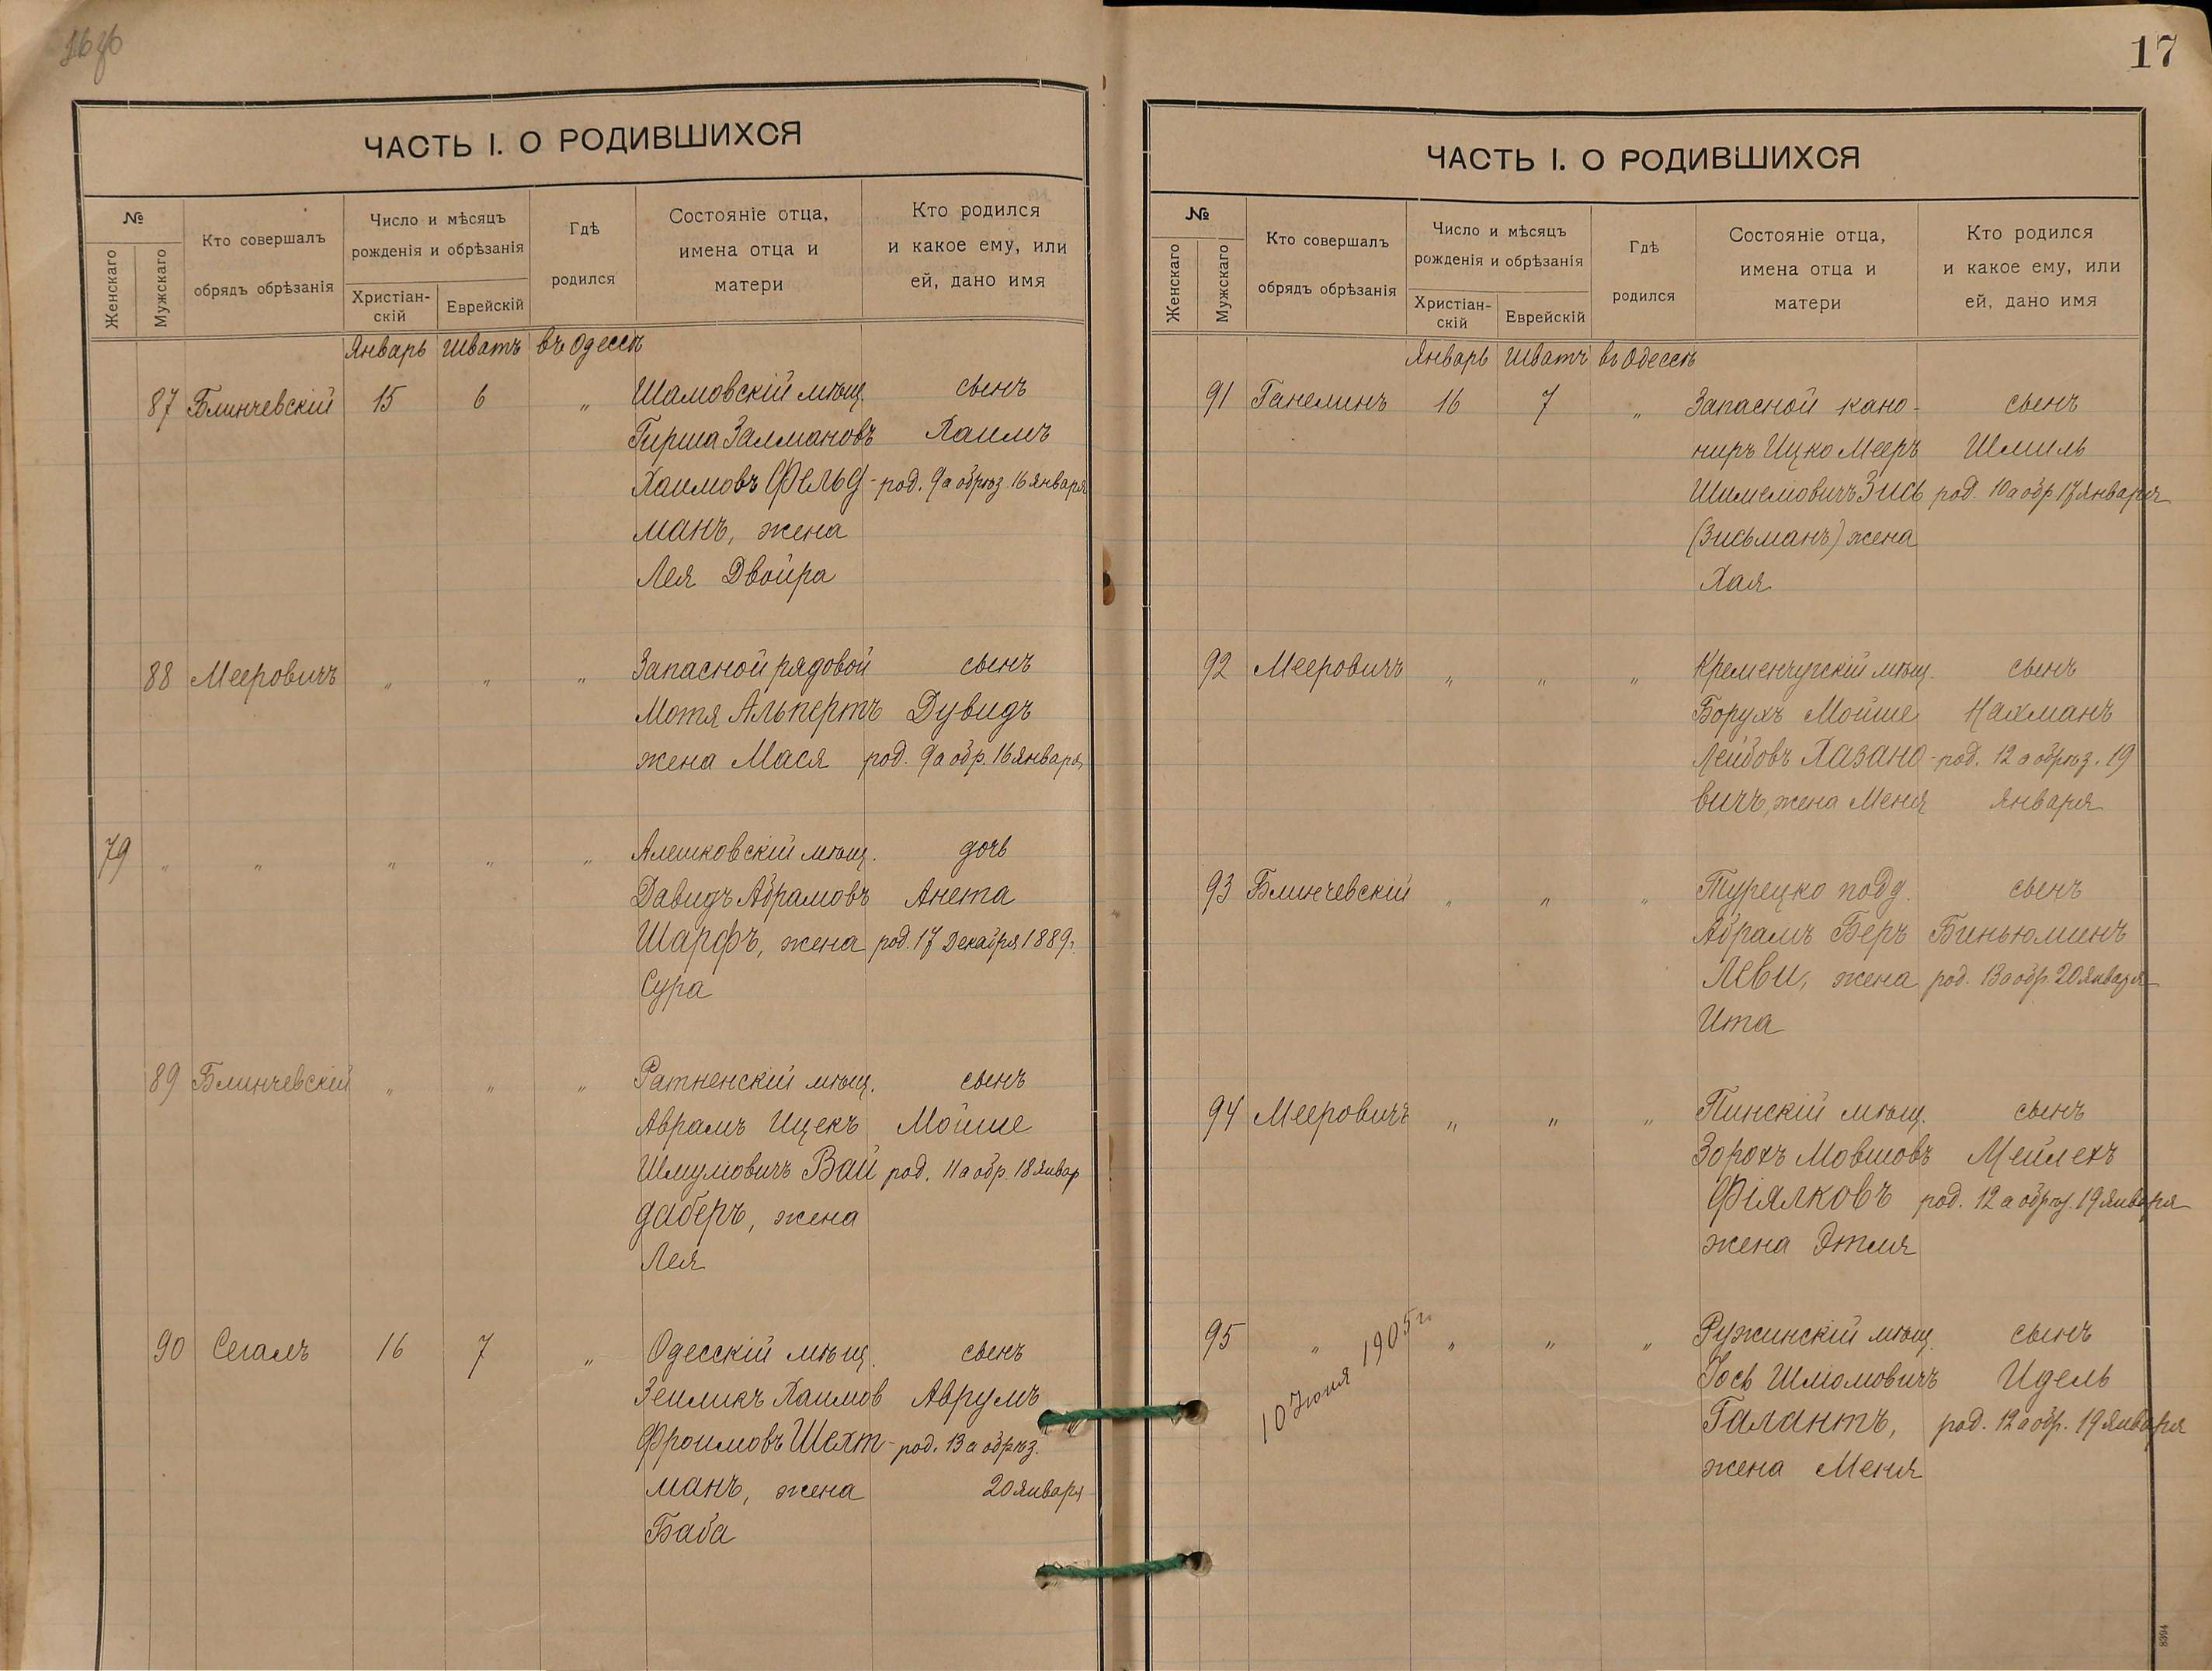 ЧАСТЬ I. О РОДИВШИХСЯ
№
Женскаго
Мужскаго
Кто совершалъ
обрядъ обрѣзанія
Число и мѣсяцъ
рожденія и обрѣзанія
Христіан-
скій
Еврейскій
Гдѣ
родился
Состояніе отца,
имена отца и
матери
Кто родился
и какое ему, или
ей, дано имя
Январь Шватъ въ Одессѣ
87 Блинчевскій 15 6 " Шамовскій мѣщ. сынъ
Гирша Залмановъ Хаимъ
Хаимовъ Фельд- род. 9 а обрѣз. 16 Января
манъ, жена
Лея Двойра
88 Мееровичъ " " " Запасной рядовой сынъ
Мотя Альпертъ Дувидъ
жена Мася род. 9 а обр. 16 Января
79 " " " " " Алешковскій мѣщ. дочь
Давидъ Абрамовъ Анета
Шарфъ, жена род. 17 Декабря 1889 г.
Сура
89 Блинчевскій " " " Ратненскій мѣщ. сынъ
Аврамъ Ицекъ Мойше
Шмуловичъ Вай род. 11 а обр. 18 Январ
даберъ, жена
Лея
90 Сегалъ 16 7 " Одесскій мѣщ. сынъ
Зейликъ Хаимов Аврумъ
Фроимовъ Шехт- род. 13 а обрѣз.
манъ, жена 20 Января
Баба
17
ЧАСТЬ I. О РОДИВШИХСЯ
№
Женскаго
Мужскаго
Кто совершалъ
обрядъ обрѣзанія
Число и мѣсяцъ
рожденія и обрѣзанія
Христіан-
скій
Еврейскій
Гдѣ
родился
Состояніе отца,
имена отца и
матери
Кто родился
и какое ему, или
ей, дано имя
Январь Шватъ въ Одессѣ
91 Ганелинъ 16 7 " Запасной кано- сынъ
ниръ Ицко Мееръ Шмиль
Шимеліовичъ Зись род. 10 а обр 17 Января
(Зисьманъ) жена
Хая
92 Мееровичъ " " " Кременчугскій мѣщ. сынъ
Борухъ Мойше Нахманъ
Лейбовъ Хазано- род. 12 а обрѣз. 19
вичъ, жена Меня Января
93 Блинчевскій " " " Турецко подд. сынъ
Абрамъ Беръ Биньюминъ
Леви, жена род. 13 а обр. 20 Января
Ита
94 Мееровичъ " " " Пинскій мѣщ. сынъ
Зорохъ Мовшовъ Мейлехъ
Фіялковъ род. 12 а обрѣз. 19 Января
жена Этля
95 " " " " Ружинскій мѣщ. сынъ
10 Іюня 1905 г.
Іось Шліомовичъ Идель
Галантъ, род. 12 а обр. 19 Января
жена Меня
8394